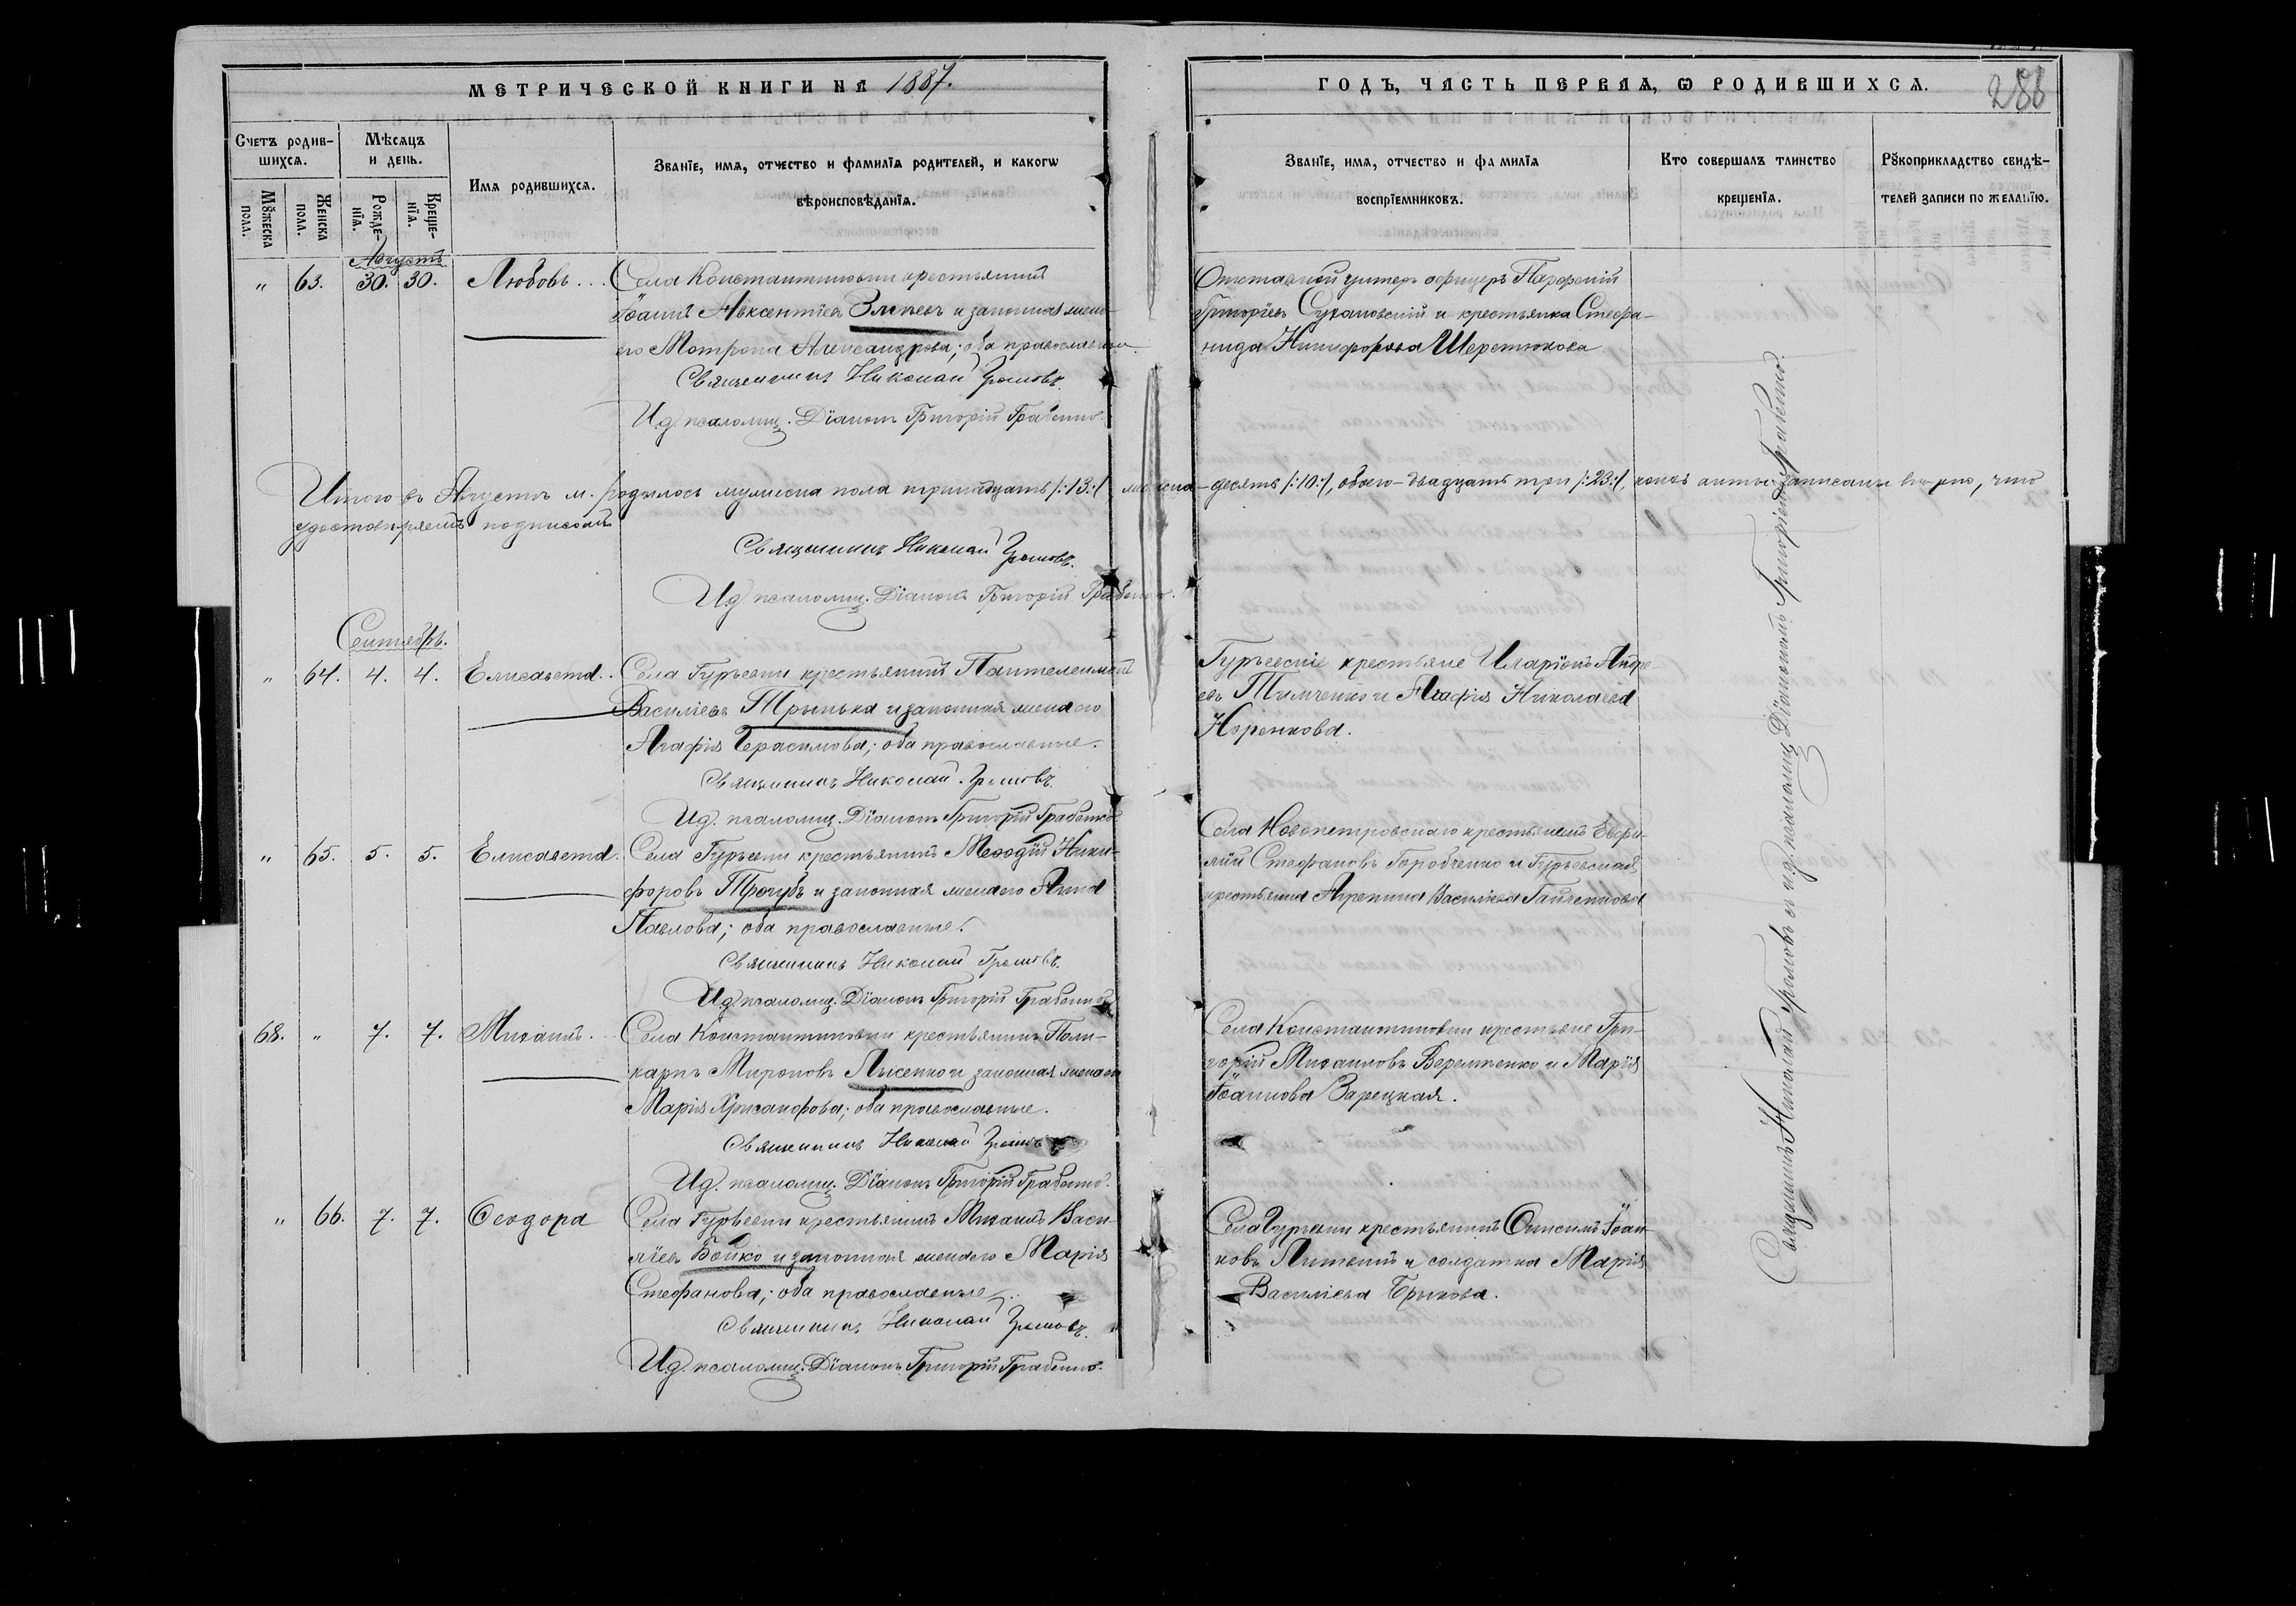 МЕТРИЧЕСКОЙ КНИГИ НА 1887.
ГОДЪ, ЧАСТЬ ПЕРВАЯ, Ѡ РОДИВШИХСѦ.
288
Счетъ родив-
шихсѧ.
Мѣсѧцъ
и день.
Имѧ родившихсѧ.
Званїе, имѧ, отчество и фамилїѧ родителей, и какогѡ
вѣроисповѣданїѧ.
Мꙋжеска
пола.
Женска
пола.
Рожде-
нїѧ.
Креще-
нїѧ.
Званїе, имѧ, отчество и фамилїѧ
воспрїемниковъ.
Кто совершалъ таинство
крещенїѧ.
Рꙋкоприкладство свидѣ-
телей записи по желанїю.
Августъ
" 63. 30. 30. Любовь...
Села Константиновки крестьянинъ
Іоаннъ Авксентіевъ и законная жена
его Матрона Александрова; оба православные.
Священникъ Николай Громовъ.
И.д. псаломщ. Діаконъ Григорій Грабенко
Отставной унтеръ офицеръ Парфеній
Григоріевъ Сухановскій и крестьянка Стефа-
нида Никифорова Шерстюкова
Итого въ Августѣ м. родилось мужеска пола тринадцать /:13:/, женска – десять /:10:/, обоего – двадцать три /:23:/, коихъ акты записаны вѣрно, что
удостовѣряемъ подписомъ
Священникъ Николай Громовъ.
И.д. псаломщ. Діаконъ Григорій Грабенко.
Сентябрь.
" 64. 4. 4. Елисавета..
Села Гурьевки крестьянинъ Пантелеимонъ
Василіевъ Трынька и законная жена его
Агафія Герасимова; оба православные.
Священникъ Николай Громовъ.
И.д. псаломщ. Діаконъ Григорій Грабенко
Гурьевскіе крестьяне Иларіонъ Андре-
евъ Тимченко и Агафія Николаева
Норенкова.
" 65. 5. 5. Елисавета.
Села Гурьевки крестьянинъ Меѳодій Ники-
форовъ Трогубъ и законная жена его Анна
Павлова; оба православные.
Священникъ Николай Громовъ.
И.д. псаломщ. Діаконъ Григорій Грабенко
Села Новопетровскаго крестьянинъ Евфи-
мій Стефановъ Горобченко и Гурьевская
крестьянка Агрепина Василіева Гайченкова
68. " 7. 7. Михаилъ.
Села Константиновки крестьянинъ Поли-
карпъ Мироновъ Лысенко и законная жена его
Марія Хрисанфова; оба православные.
Священникъ Николай Громовъ
И.д. псаломщ. Діаконъ Григорій Грабенко.
Села Константиновки крестьяне Гри-
горій Михаиловъ Веремѣенко и Марія
Іоаннова Зарецкая.
" 66. 7. 7. Ѳеодора
Села Гурьевки крестьянинъ Михаилъ Васи-
ліевъ Бойко и законная жена его Марія
Стефанова; оба православные.
Священникъ Николай Громовъ.
И.д. псаломщ. Діаконъ Григорій Грабенко.
Села Гурьевки крестьянинъ Онисимъ Іоан-
новъ и солдатка Марія
Василіева Брыкова.
Священникъ Николай Громовъ и и.д. псаломщ. Діаконъ Григорій Грабенко.